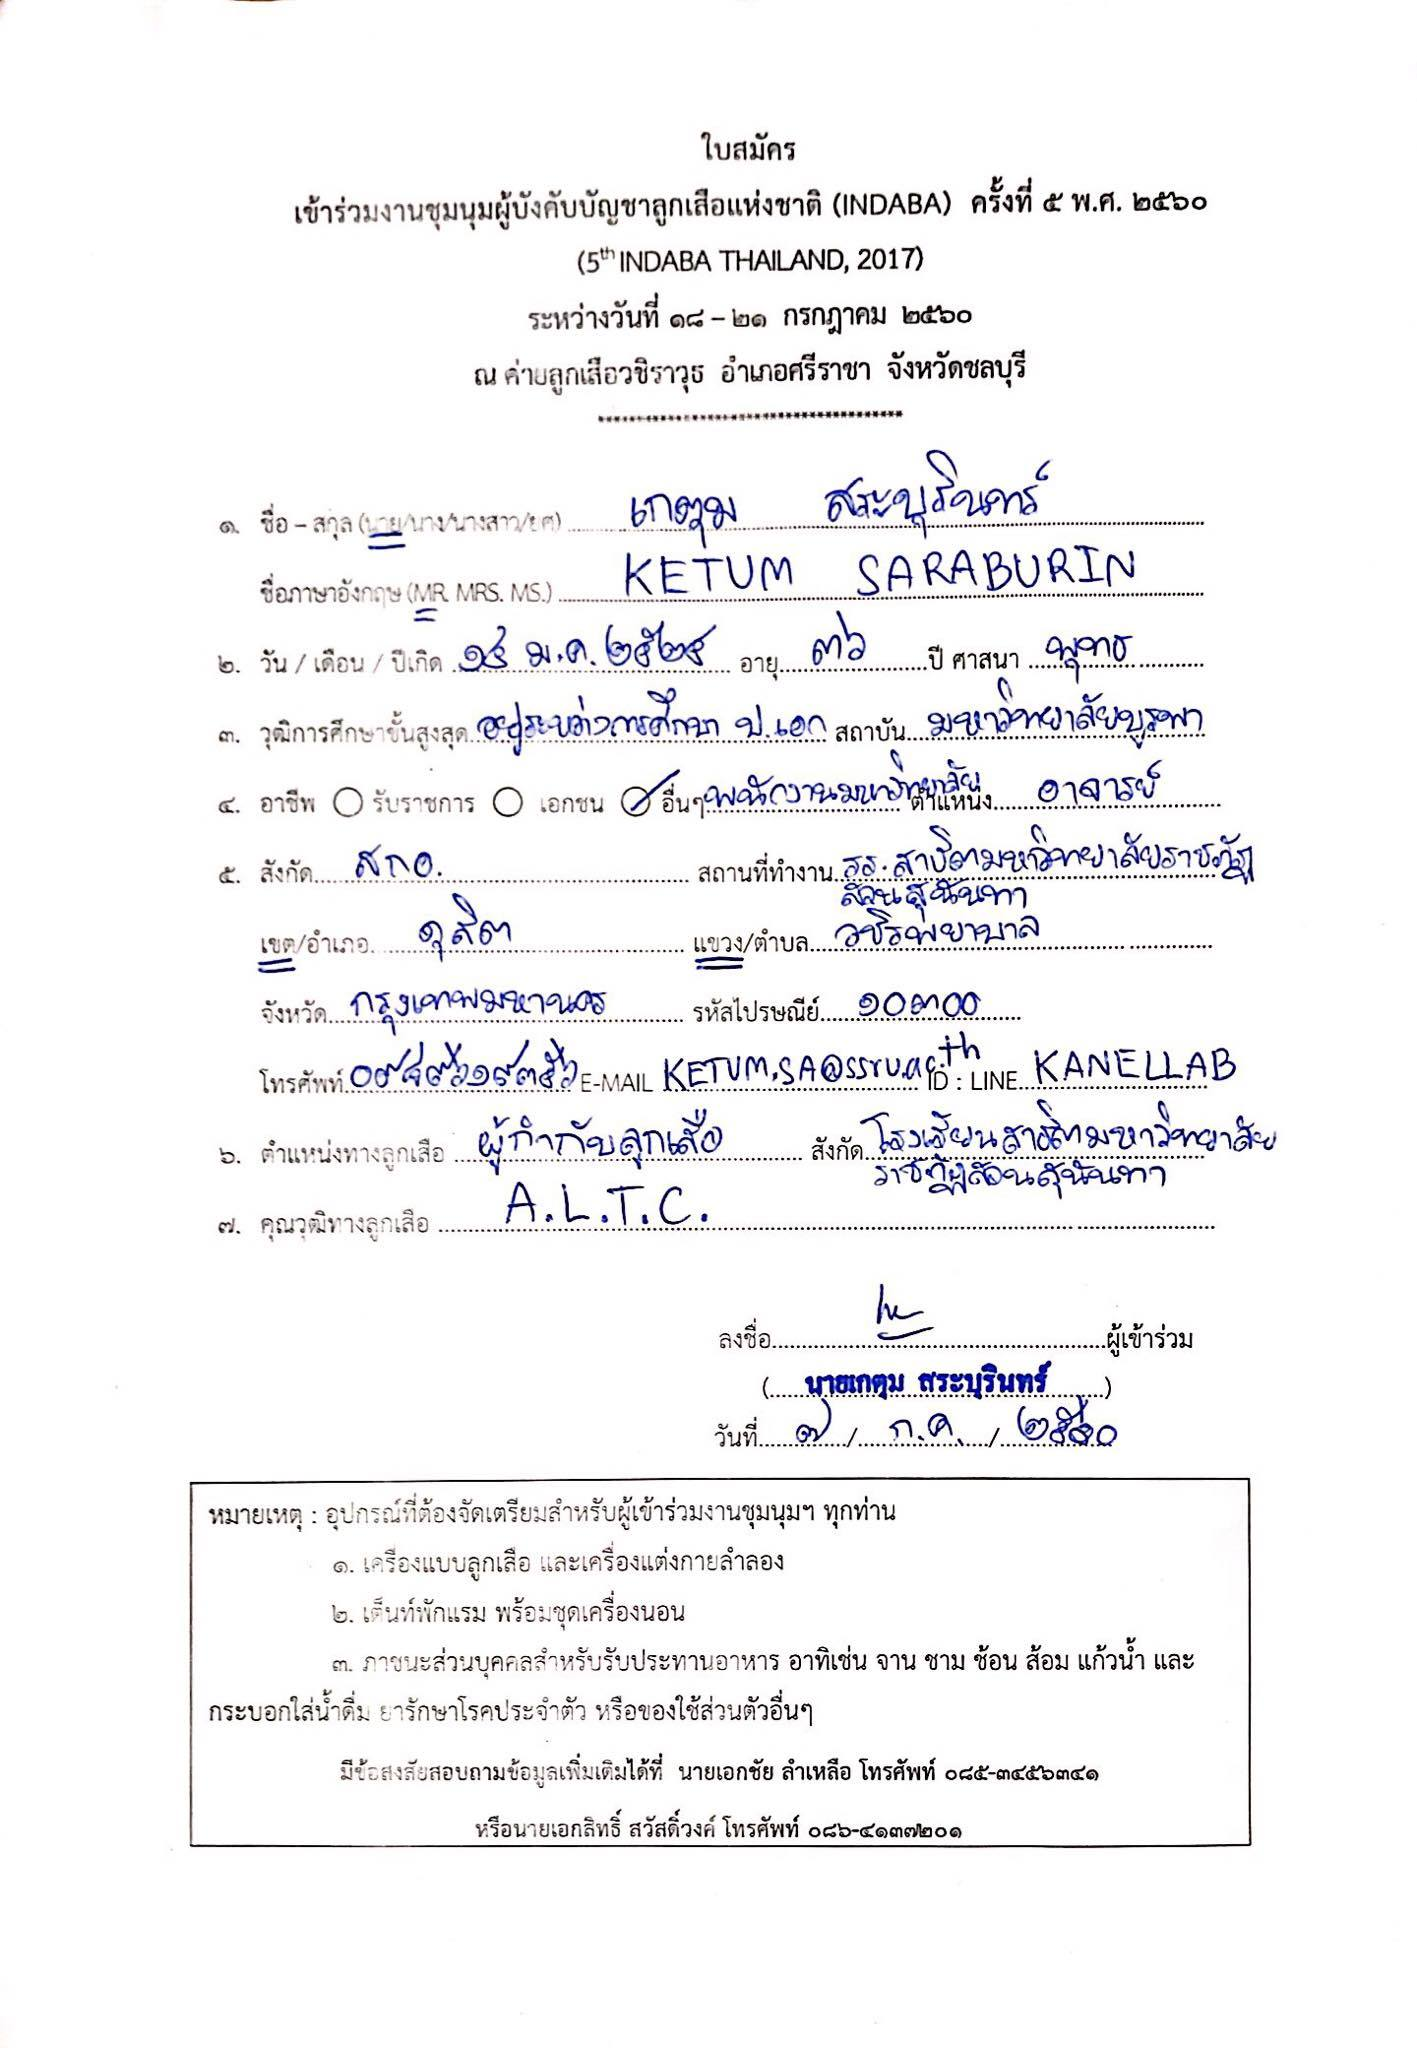 ใบสมัคร
เข้าร่วมงานชุมนุมผู้บังคับบัญชาลูกเสือแห่งชาติ (INDABA) ครั้งที่ ๕ พ.ศ. ๒๕๖๐
(5th INDABA THAILAND, 2017)
ระหว่างวันที่ ๑๘ – ๒๑ กรกฎาคม ๒๕๖๐
ณ ค่ายลูกเสือวชิราวุธ อำเภอศรีราชา จังหวัดชลบุรี
๑. ชื่อ – สกุล (นาย/นาง/นางสาว/ยศ) เกตุม สระบุรินทร์
ชื่อภาษาอังกฤษ (MR. MRS. MS.) KETUM SARABURIN
๒. วัน / เดือน / ปีเกิด ๑๕ ม.ค. ๒๕๒๕ อายุ ๓๖ ปี ศาสนา พุทธ
๓. วุฒิการศึกษาขั้นสูงสุด อยู่ระหว่างการศึกษา ป.เอก สถาบัน มหาวิทยาลัยบูรพา
๔. อาชีพ รับราชการ เอกชน อื่นๆ พนักงานมหาวิทยาลัย ตำแหน่ง อาจารย์
๕. สังกัด สกอ. สถานที่ทำงาน รร.สาธิตมหาวิทยาลัยราชภัฏ
สวนสุนันทา
เขต/อำเภอ ดุสิต แขวง/ตำบล วชิรพยาบาล
จังหวัด กรุงเทพมหานคร รหัสไปรษณีย์ ๑๐๓๐๐
โทรศัพท์ E-MAIL KETUM.SA@ssru.ac.th ID : LINE KANELLAB
๖. ตำแหน่งทางลูกเสือ ผู้กำกับลูกเสือ สังกัด โรงเรียนสาธิตมหาวิทยาลัย
ราชภัฏสวนสุนันทา
๗. คุณวุฒิทางลูกเสือ A.L.T.C.
ลงชื่อ ผู้เข้าร่วม
(นายเกตุม สระบุรินทร์)
วันที่ ๗ / ก.ค. / ๒๕๖๐
หมายเหตุ : อุปกรณ์ที่ต้องจัดเตรียมสำหรับผู้เข้าร่วมงานชุมนุมฯ ทุกท่าน
๑. เครื่องแบบลูกเสือ และเครื่องแต่งกายลำลอง
๒. เต็นท์พักแรม พร้อมชุดเครื่องนอน
๓. ภาชนะส่วนบุคคลสำหรับรับประทานอาหาร อาทิเช่น จาน ชาม ช้อน ส้อม แก้วน้ำ และ
กระบอกใส่น้ำดื่ม ยารักษาโรคประจำตัว หรือของใช้ส่วนตัวอื่นๆ
มีข้อสงสัยสอบถามข้อมูลเพิ่มเติมได้ที่ นายเอกชัย ลำเหลือ โทรศัพท์ ๐๘๕-๓๔๕๖๓๔๑
หรือนายเอกสิทธิ์ สวัสดิ์วงค์ โทรศัพท์ ๐๘๖-๔๑๓๗๒๐๑